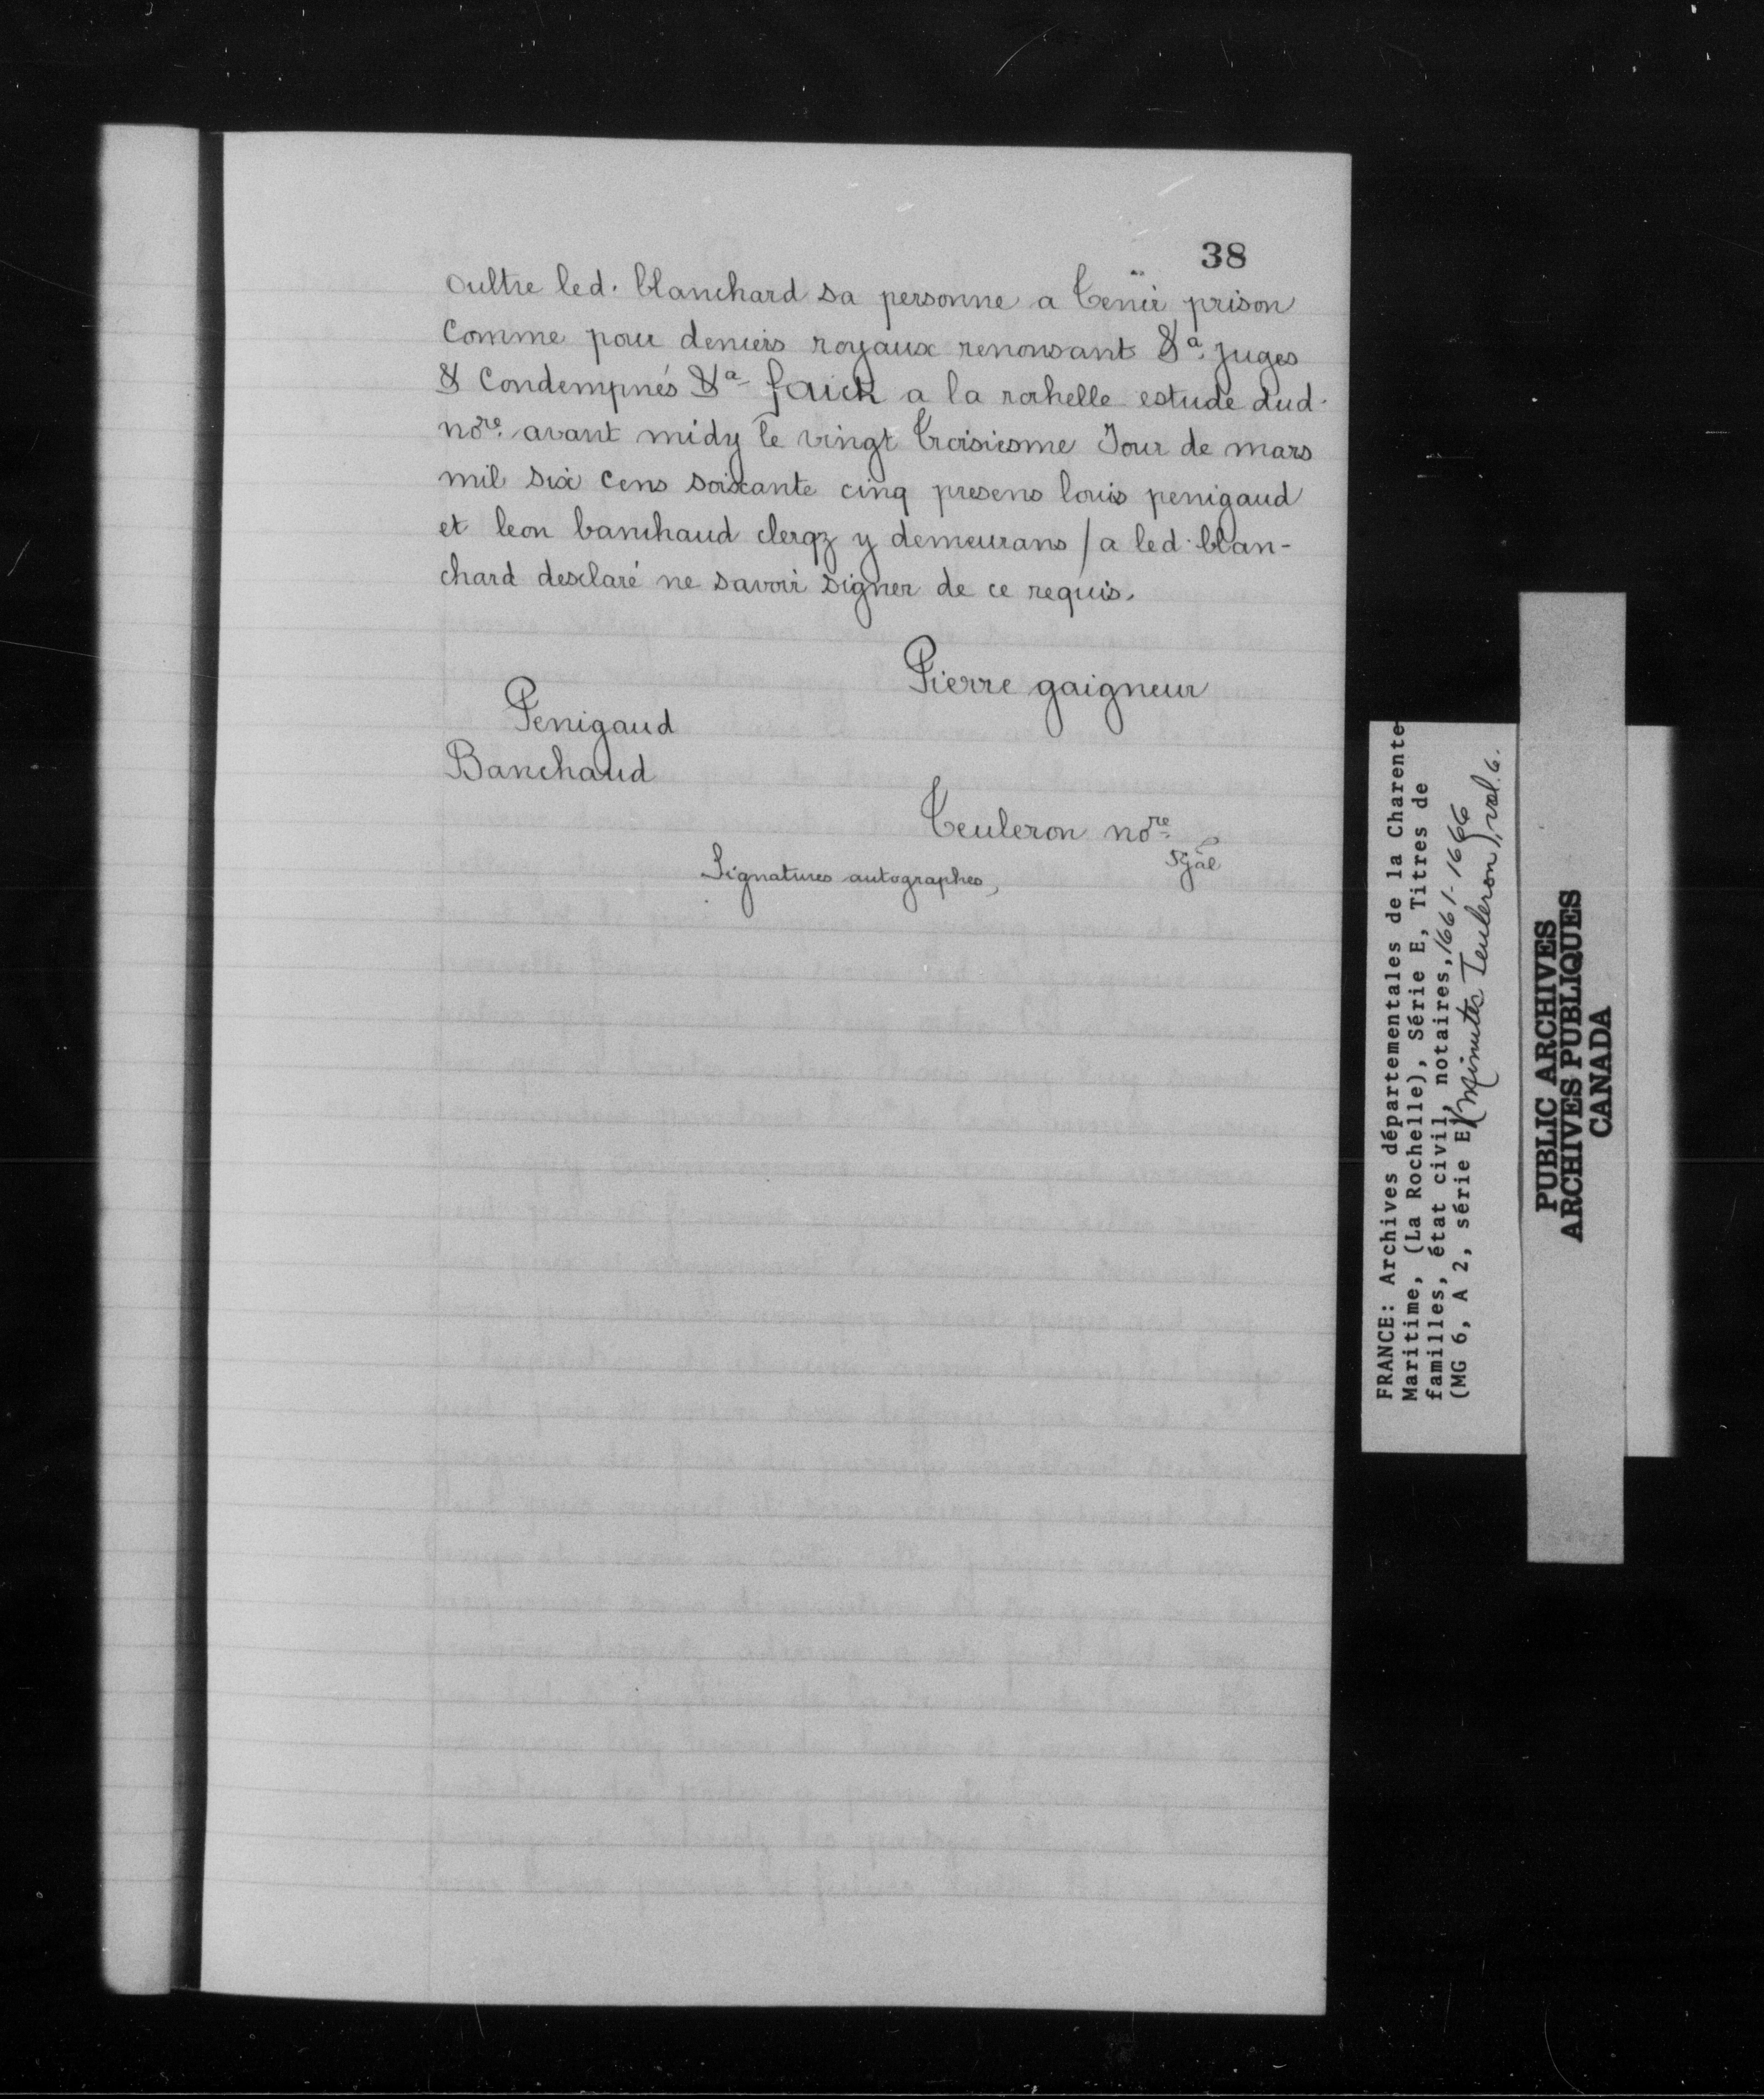 38
oultre led. blanchard sa personne a tenir prison
Comme pour deniers royaux renonsant &a. juges
& Condempnés &a faict a la rochelle estude dud.
nore. avant midy le vingt troisiesme Jour de mars
mil six cens soixante cinq presens louis penigaud
et leon banchaud clerqz y demeurans / a led. blan-
chard desclaré ne savoir signer de ce requis.
Pierre gaigneur
Penigaud
Banchaud
Teuleron nore
Rgal
Signatures autographes,
FRANCE: Archives départementales de la Charente-
Maritime, (La Rochelle), Série E, Titres de
familles, état civil, notaires, 1661-1666
(MG 6, A 2, série E) (Minutes Teuleron), vol. 6.
PUBLIC ARCHIVES
ARCHIVES PUBLIQUES
CANADA